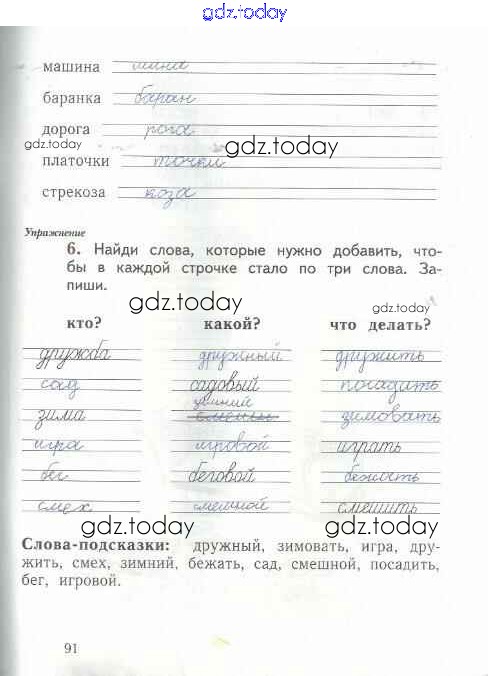 gdz.today
машина мина
баранка баран
дорога рога
gdz.today gdz.today
платочки точки
стрекоза коза
Упражнение
6. Найди слова, которые нужно добавить, что-
бы в каждой строчке стало по три слова. За-
пиши.
gdz.today gdz.today
кто? какой? что делать?
дружба дружный дружить
сад садовый посадить
зимний
зима зимовать
игра игровой играть
бег беговой бежать
смех смешной смешить
gdz.today gdz.today
Слова-подсказки: дружный, зимовать, игра, дру-
жить, смех, зимний, бежать, сад, смешной, посадить,
бег, игровой.
gdz.today
91